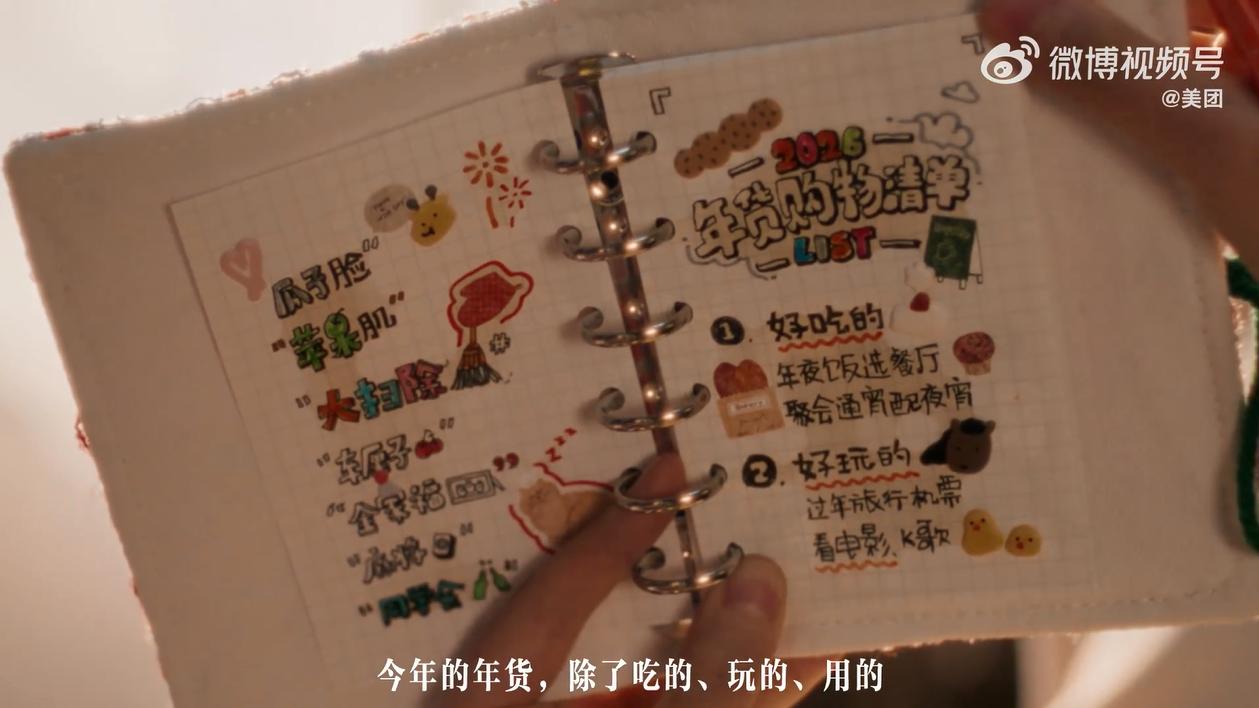 微博视频号
@美团
"瓜子脸"
"苹果肌"
"大扫除
#
"车厘子"
"全家福"
"麻将"
"同学会"
zzz
『
』
2026
年货购物清单
LIST
1. 好吃的
年夜饭选餐厅
聚会通宵配夜宵
2. 好玩的
过年旅行机票
看电影、K歌
今年的年货，除了吃的、玩的、用的